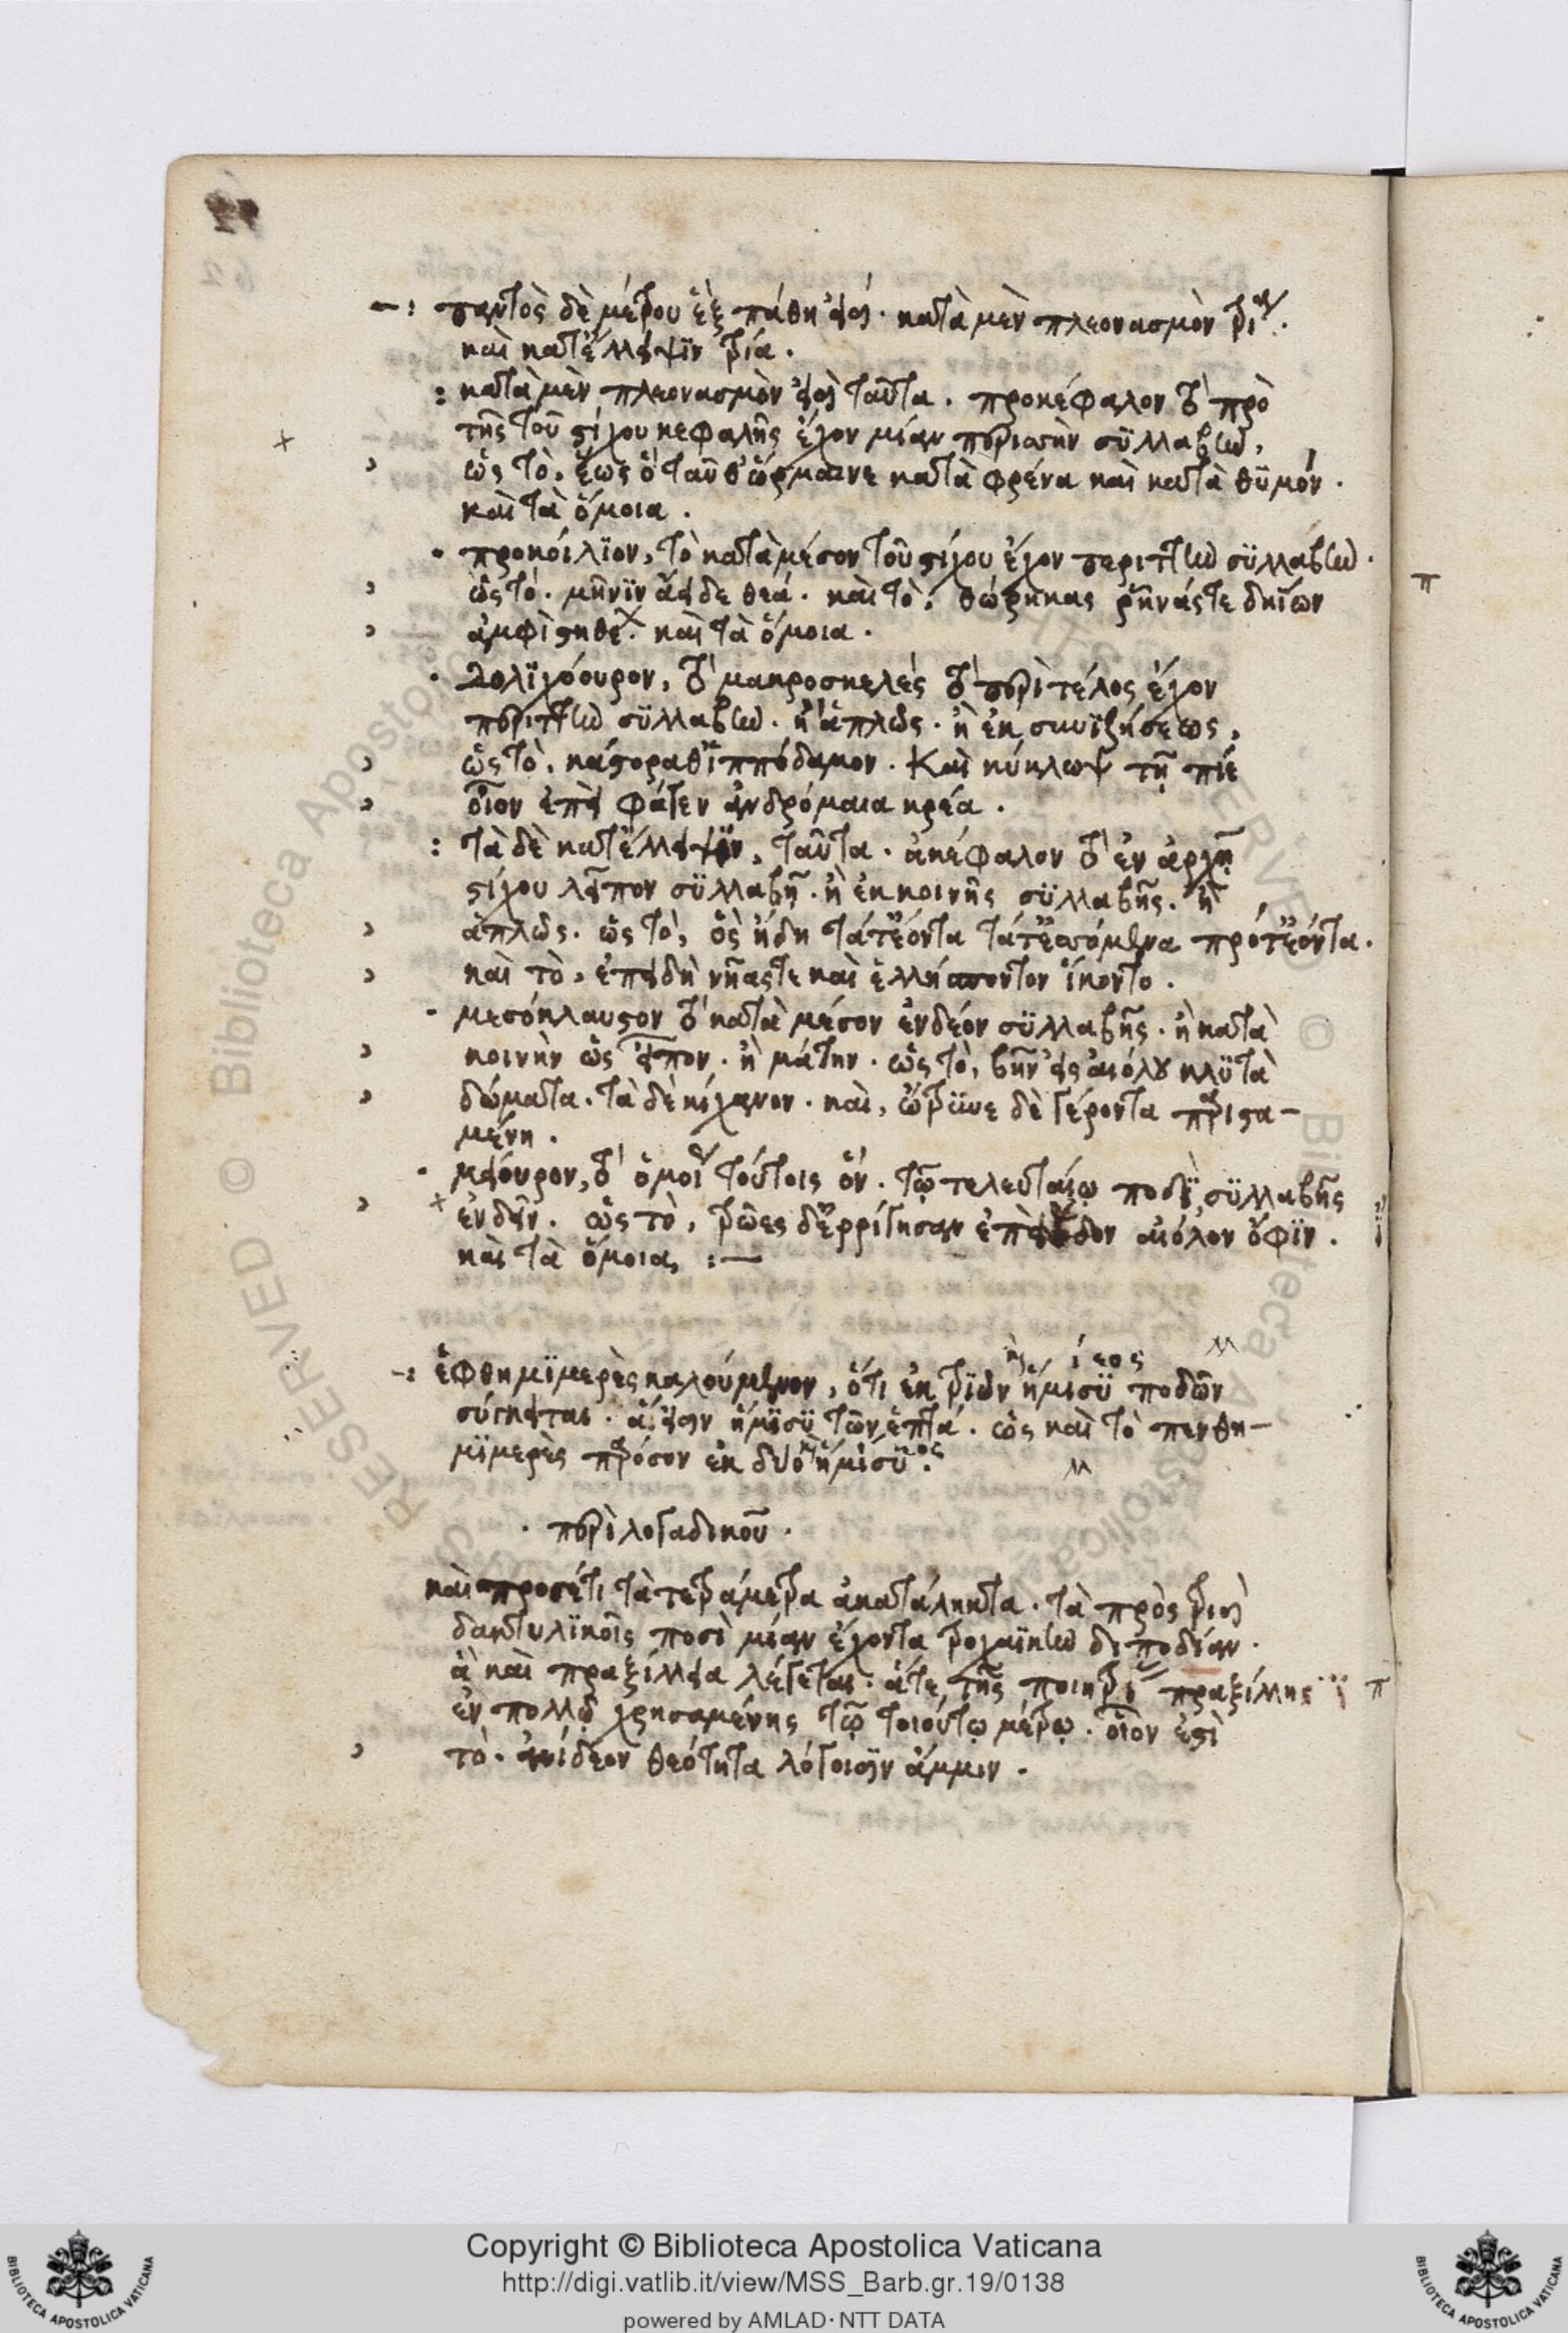 παντὸς δὲ μέτρου ἓξ πάθη εἰσί· κατὰ μὲν πλεονασμὸν τρία·
καὶ κατ' ἔλλειψϊν τρία.
: κατὰ μὲν πλεονασμὸν εἰσὶ ταῦτα. προκέφαλον τὸ πρὸ
τῆς τοῦ στίχου κεφαλῆς ἔχον μίαν περισσὴν σϋλλαβὴν,
ὡς τὸ, ἕως ὃ ταῦθ' ὥρμαινε κατὰ φρένα καὶ κατὰ θϋμόν.
καὶ τὰ ὅμοια.
προκοίλϊον, τὸ κατὰ μέσον τοῦ στίχου ἔχον περιττὴν σϋλλαβὴν.
ὡς τό. μῆνϊν ἄειδε θεά. καὶ τὸ, θώρηκας ῥήξειν δηΐων
ἀμφὶ στήθε. καὶ τὰ ὅμοια.
δολϊχόουρον, τὸ μακροσκελές τὸ περὶ τέλος ἔχον
περιττὴν σϋλλαβὴν. ἢ ἁπλῶς. ἢ ἐκ συνϊζήσεως,
ὡς τὸ, κάστορα θ' ἱππόδαμον. Καὶ κύκλωψ τῆ πίε
οἶνον ἐπεὶ φάγεν ἀνδρόμαια κρέα.
: τὰ δὲ κατ' ἔλλειψϊν, ταῦτα. ἀκέφαλον τὸ ἐν ἀρχῇ
στίχου λεῖπον σϋλλαβῇ. ἢ ἐκ κοινῆς σϋλλαβῆς. ἢ
ἁπλῶς. ὡς τὸ, ὃς ᾔδη τά τ' ἐόντα τά τ' ἐσσόμενα πρό τ' ἐόντα.
καὶ τὸ, ἐπειδὴ νῆάς τε καὶ ἑλλήσποντον ἵκοντο.
μεσόκλαυστον τὸ κατὰ μέσον ἐνδέον σϋλλαβῆς. ἢ κατὰ
κοινὴν ὡς εἶπον. ἢ μάτην. ὡς τὸ, βῆν εἰς αἰόλου κλϋτὰ
δώματα. τὰ δὲ κίχανον. καὶ, ὤτρϋνε δὲ γέροντα παρϊστα-
μένη.
μείουρον, τὸ ὁμοίως τούτοις ὂν. τῷ τελευταίῳ ποδὶ, σϋλλαβῆς
ἐνδεῖν. ὡς τὸ, τρῶες δ' ἐρρίγησαν ἐπεὶ ἴδον αἰόλον ὄφϊν.
καὶ τὰ ὅμοια, :—
ἑφθημϊμερὲς καλούμενον, ὅτι ἐκ τρϊῶν ἥμισϋ ποδῶν
σύγκειται. ἅ εἰσιν ἥμϊσϋ τῶν ἑπτά. ὡς καὶ τὸ πενθη-
μϊμερὲς παρόσον ἐκ δύο ἡμίσϋος.
. περὶ λογαδικοῦ.
καὶ προσέτι τὰ τετράμετρα ἀκατάληκτα. τὰ πρὸς τρισὶ
δακτυλϊκοῖς ποσὶ μίαν ἔχοντα τροχαϊκὴν διποδίαν.
ἃ καὶ πραξίλλεια λέγεται. ἅτε τῆς ποιητρίας πραξίλλης
ἐν πολλῷ χρησαμένης τῷ τοιούτῳ μέτρῳ. οἷόν ἐστὶ
τὸ. θεότητα λόγοισϊν ἄμμιν.
Copyright © Biblioteca Apostolica Vaticana
http://digi.vatlib.it/view/MSS_Barb.gr.19/0138
powered by AMLAD · NTT DATA